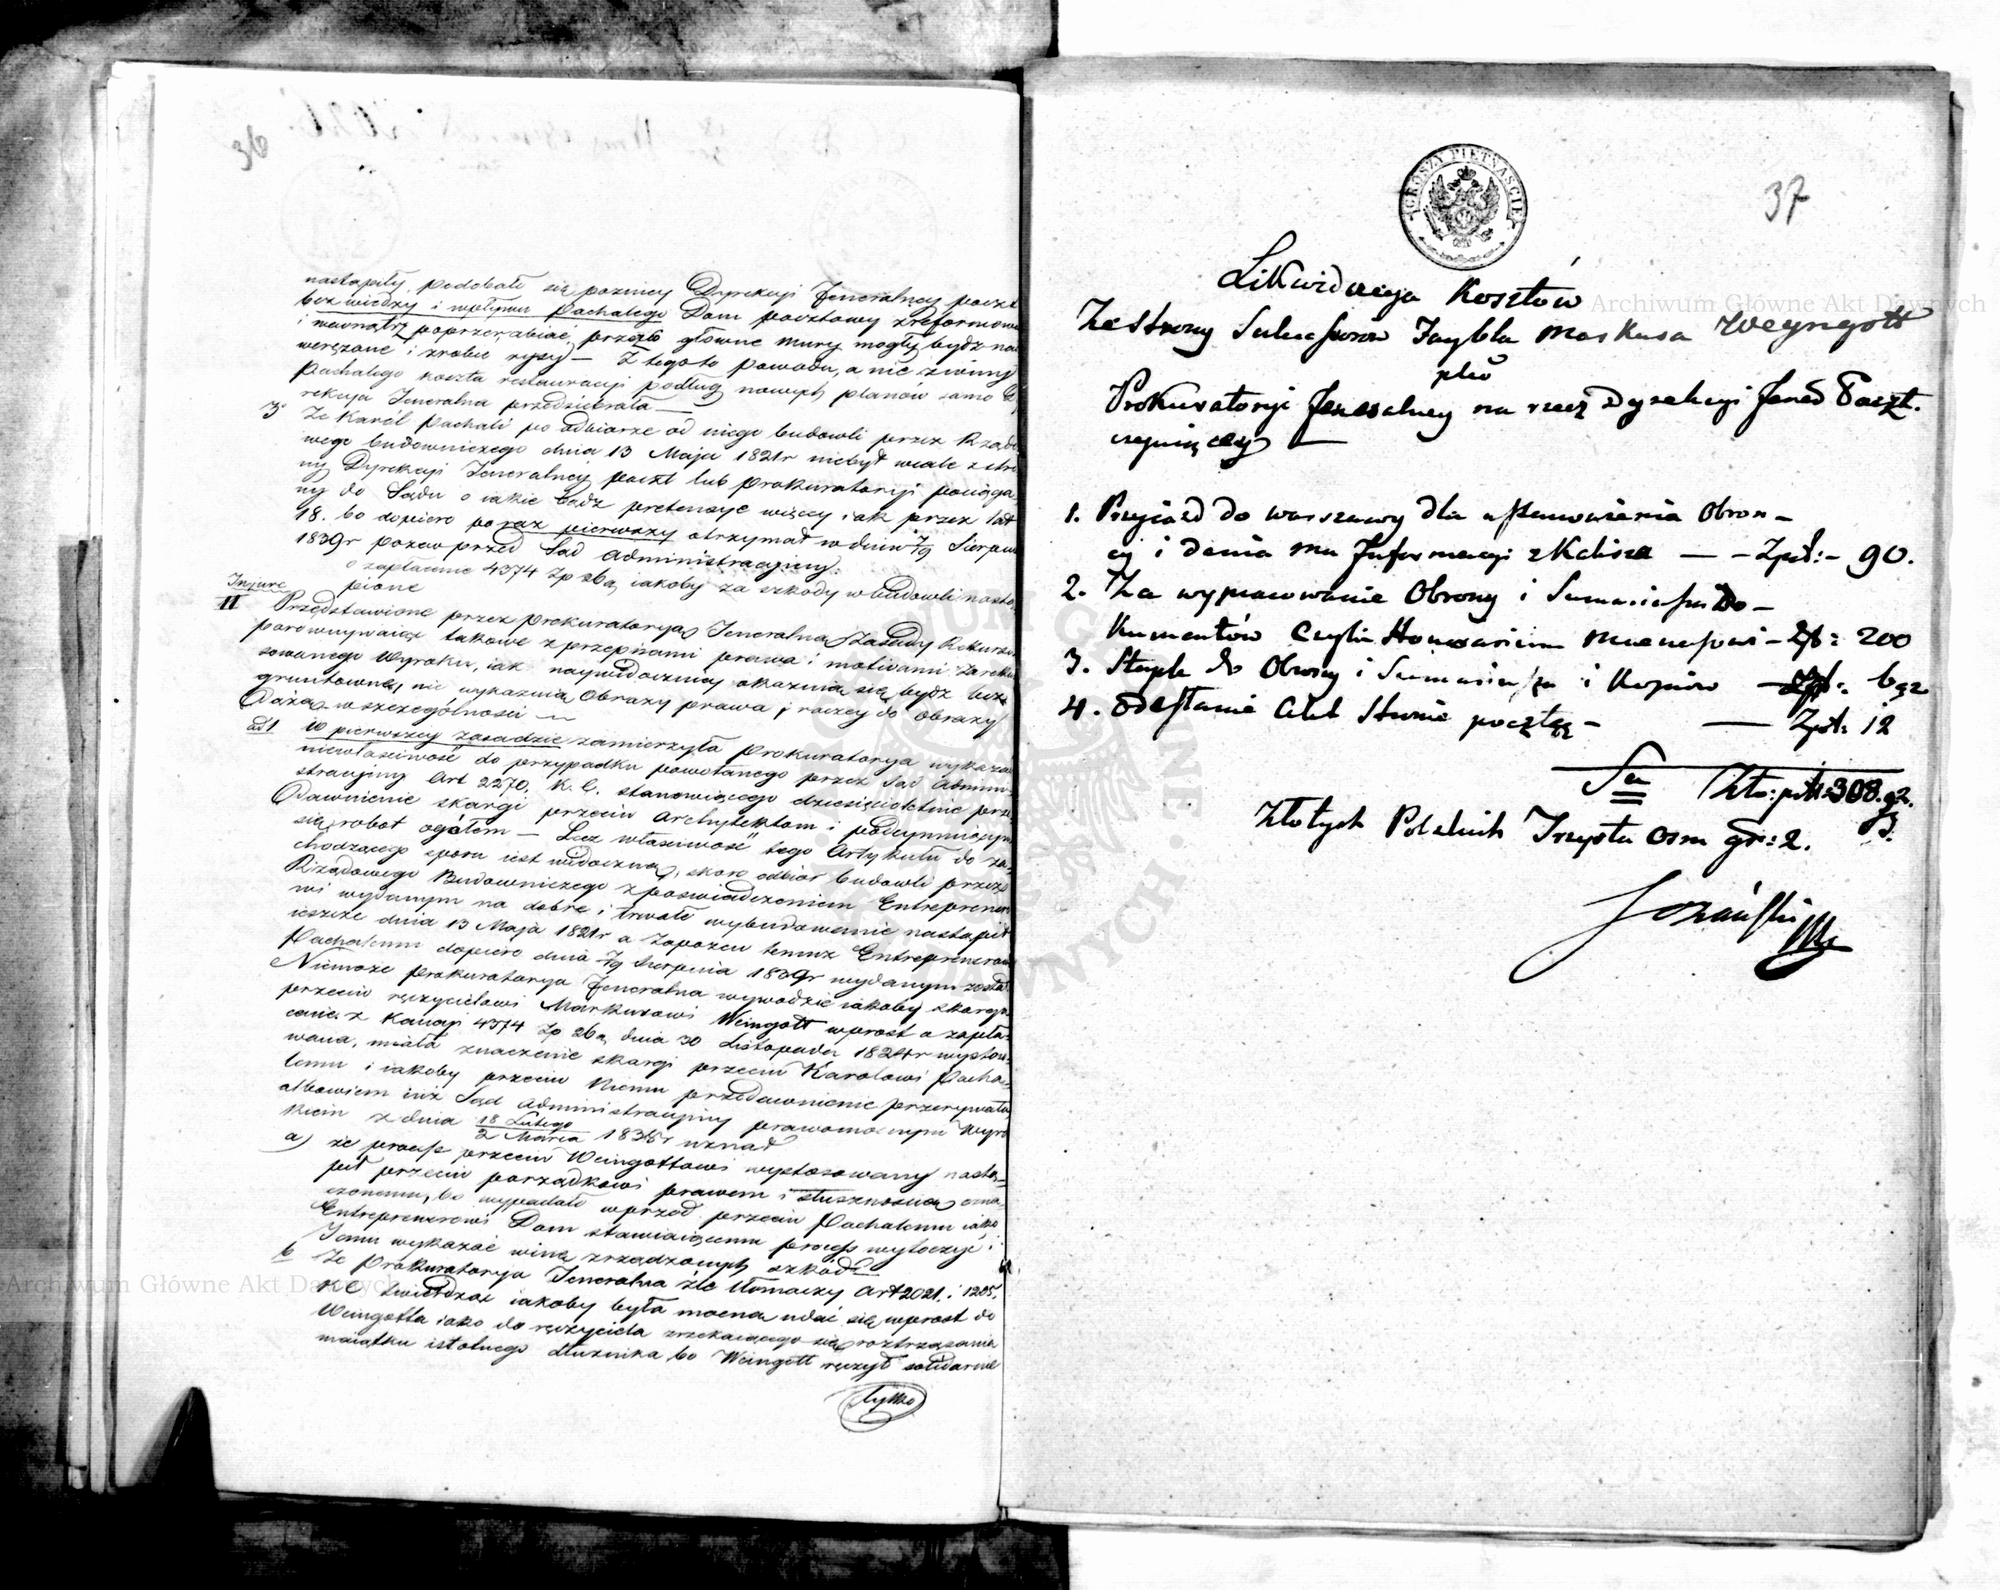 36
nastąpiły, podobało się pozniey Dyrekcyi Jeneralney poczt
bez wiedzy i wpływu Pachalego Dom pocztowy zreformow
i wewnątrz poprzerabiać, przezco główne mury mogły bydź na
werężone i zrobić rysy — Z tegoto powodu, a nie z winy
Pachalego koszta restauracyi podług nowych planów samo D
rekcya Jeneralna przedsiebrała —
3° Ze Karól Pachali po odbiorze od niego budowli przez Rządo
wego budowniczego dnia 13 Maja 1821r niebył wcale z stro
ny Dyrekcyi Jeneralney poczt lub Prokuratoryi pociąga
ny do Sądu o iakie bądź pretensye więcey iak przez lat
18. bo dopiero po raz pierwszy otrzymał w dniu 7/19 Sierpnia
1839r pozew przed Sąd Administracyiny.
o zapłacenie 4374 Zp 26 g, iakoby za szkody w budowli nastą
pione
In jure
II Przedstawione przez Prokuratorya Jeneralna Zasady Rekursu
porównywaiąc takowe z przepisami prawa i motivami zareku
sowanego Wyroku, iak naywidoczniey okaznia się bydź bez
gruntowne, nie wykaznią Obrazy prawa, i raczey do obrazy
Dążą w szczególności —
ad 1 w pierwszey zasadzie zamierzyła Prokuratorya wykaza
niewłaściwość do przypadku powołanego przez Sąd Admini
stracyiny Art 2270, K. C. stanowiącego dziesięcioletnie prze
Dawnienie skargi przeciw Architektom i podeymuiącym
się robot ogółem — Lecz właściwość tego Artykułu do za
chodzącego sporu iest widoczna, skoro odbiór budowli przez
Rządowego Budowniczego z poswiadczeniem Entreprener
wi wydanym na dobre i trwałe wybudowanie nastąpił
ieszcze dnia 13 Maja 1821r a Zapozew temuż Entreprenerowi
Pachalemu dopiero dnia 7/19 Sierpnia 1839r wydanym został
Niemoze Prokuratorya Jeneralna wywodzić iakoby skarga
przeciw ręczycielowi Markusowi Weingott wprost o zapła
cenie z Kaucyi 4374 Zp 26 g, dnia 30 Listopada 1824r wystoso
wana, miała znaczenie skargi przeciw Karolowi Pacha
lemu i iakoby przeciw Niemu przedawnienie przerywała
albowiem iuż Sąd Administracyiny prawomocnym Wyro
kiem z dnia 18 Lutego / 2 Marca 1835r uznał
a) że process przeciw Weingottowi wystosowany nastą
pił przeciw porządkowi prawem i słusznością ozna
czonemu, bo wypadało wprzod przeciw Pachalemu iako
Entreprenerowi Dom stawiaiącemu process wytoczyć i
Jemu wykazać winę zrządzonych szkód
b Ze Prokuratorya Jeneralna źle tłomaczy Art 2021. i 1205.
KC twierdząc iakoby była mocna udać się wprost do
Weingotta iako do ręczyciela zrzekaiącego się roztrząsania
maiątku istotnego dłużnika, bo Weingott ręczył solidarnie
tylko
GROSZY PIĘTNAŚCIE
37
Likwidacya Kosztów
Ze Strony Sukcessorow Faybla Markusa Weyngott
plko
Prokuratoryi Jeneralney na rzecz Dyrekcyi Jened Poczt.
czyniącey —
1. Przyiazd do Warszawy dla ustanowienia Obron —
cy i dania mu Informacyi z Kalisza — — Zpol: — 90.
2. Za wypracowanie Obrony i Sumariusza Do —
kumentów czyli Honorarium Mecenasowi — Zp: 200
3. Stępel do Obrony i Sumariusza i Kopiów — Zpl: 6 g 2
4. Odesłanie Akt Stronie pocztą — — Zpol: 12
Sa Zło: pol: 308. g 2.
Złotych Polskich Trzysta Osm gr: 2.
Archiwum Główne Akt Dawnych
Archiwum Główne Akt Dawnych